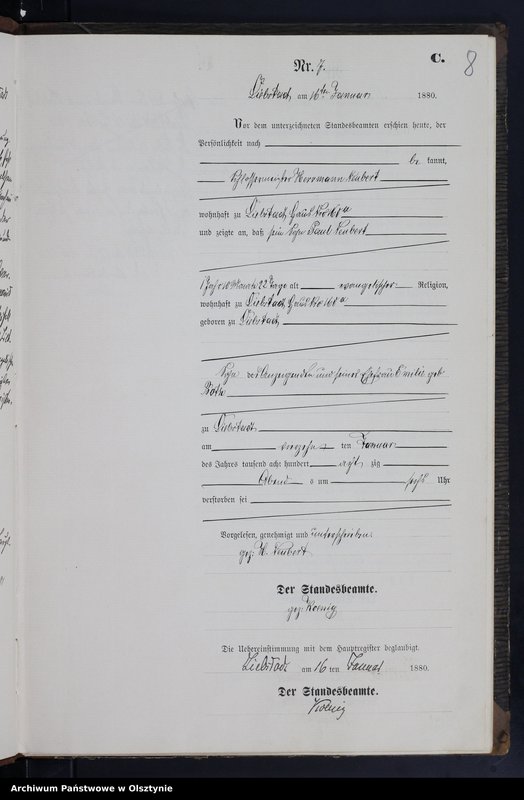 C.
8
Nr. 7.
Liebstadt, am 16ten Januar 1880.
Vor dem unterzeichneten Standesbeamten erschien heute, der
Persönlichkeit nach
be kannt,
Schlossermeister Herrmann Neubert
wohnhaft zu Liebstadt, Haus No 160a
und zeigte an, daß sein Sohn Paul Neubert
1 Jahr 10 Monate 22 Tage alt evangelischer Religion,
wohnhaft zu Liebstadt, Haus No 160a
geboren zu Liebstadt,
Sohn des Anzeigenden und seiner Ehefrau Emilie geb.
zu Liebstadt
am vierzehn ten Januar
des Jahres tausend acht hundert acht zig
Abends um sechs Uhr
verstorben sei
Vorgelesen, genehmigt und unterschrieben.
gez. H. Neubert
Der Standesbeamte.
gez. Koenig
Die Uebereinstimmung mit dem Hauptregister beglaubigt.
Liebstadt am 16 ten Januar 1880.
Der Standesbeamte.
Koenig
Archiwum Państwowe w Olsztynie